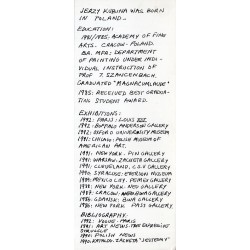 JERZY KUBINA WAS BORN
IN POLAND
EDUCATION:
1981/1985: ACADEMY OF FINE
ARTS. CRACOW - POLAND.
BA. MFA: DEPARTMENT
OF PAINTING UNDER INDI-
VIDUAL INSTRUCTION OF
PROF. J. SZANCENBACH.
GRADUATED "MAGNACUMLAUDE"
1985: RECEIVED BEST GRADUA-
TING STUDENT AWARD.
EXHIBITIONS:
1992: PARIS: LOUIS III
1992: BUFFALO ANDERSON GALLERY
1992: OXFORD UNIVERSITY MUSEUM
1991: CHICAGO: POLISH MUSEUM
OF AMERICAN ART.
1991: NEW YORK - PIN GALLERY
1991: WARSAW: ZACHETA GALLERY
1991: CLEVELAND, C.S.V GALLERY
1990: SYRACUSE: EVERSON MUSEUM
1989: MEXICO CITY, PEMEX GALLERY
1988: NEW YORK: NEO GALLERY
1987: CRACOW: BWA GALLERY
1986: GDANSK: BWA GALLERY
1986: NEW YORK PASS GALLERY
BIBLIOGRAPHY:
1992: VOGUE - PARIS
1991: ART NEWS:
STRUGGLE
1990: POLISH NEWS
1990: KATALOG: ZACHETA "JESTESMY"